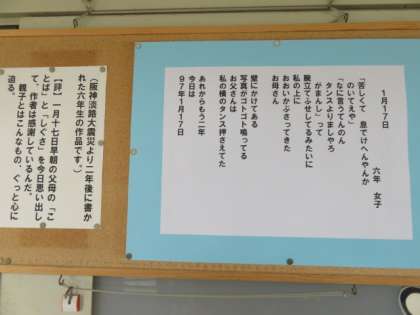 １月１７日
六年　女子
「苦しくて　息でけへんやんか
のいてえや」
「なに言うてんのん
タンスよりましやろ
がまんし」って
腕立てふせしてるみたいに
私の上に
おおいかぶさってきた
お母さん
壁にかけてある
写真がゴトゴト鳴ってる
お父さんは
私の横のタンス押さえてた
あれからもう二年
今日は
９７年１月１７日
（阪神淡路大震災より二年後に書か
れた六年生の作品です。）
【評】一月十七日早朝の父母の「こ
とば」と「しぐさ」を今日思い出し
て、作者は感謝しているんだ。
親子とはこんなもの、ぐっと心に
迫る。